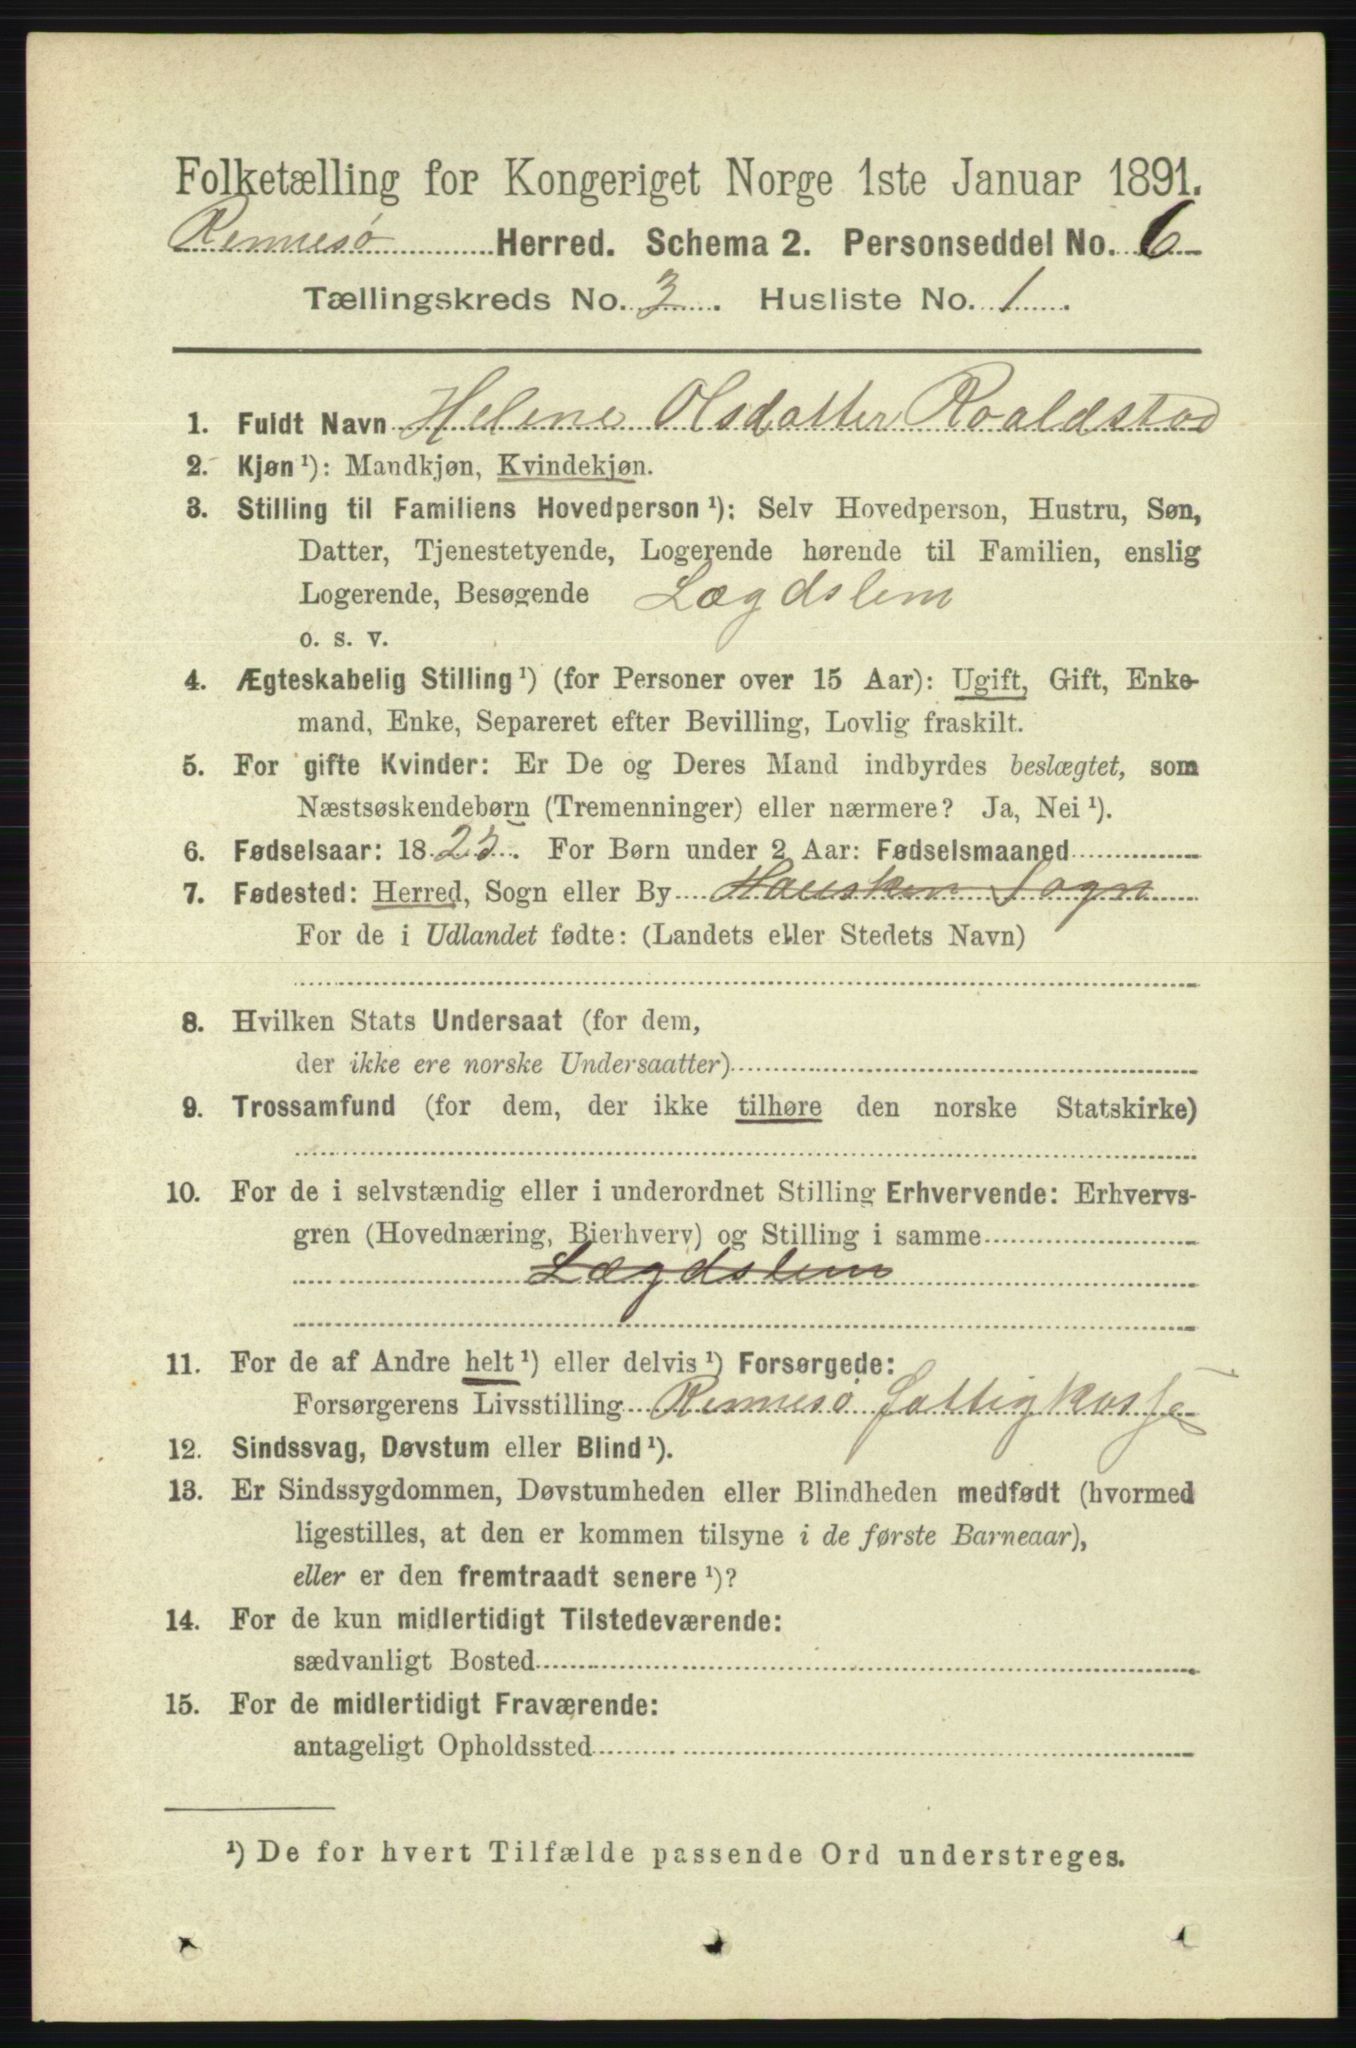 Folketælling for Kongeriget Norge 1ste Januar 1891.
Rennesø Herred. Schema 2. Personseddel No. 6
Tællingskreds No. 3. Husliste No. 1.
1. Fuldt Navn Helene Olsdatter Roaldstad
2. Kjøn ¹): Mandkjøn, Kvindekjøn.
3. Stilling til Familiens Hovedperson ¹): Selv Hovedperson, Hustru, Søn,
Datter, Tjenestetyende, Logerende hørende til Familien, enslig
Logerende, Besøgende Lægdslem
o. s. v.
4. Ægteskabelig Stilling ¹) (for Personer over 15 Aar): Ugift, Gift, Enke-
mand, Enke, Separeret efter Bevilling, Lovlig fraskilt.
5. For gifte Kvinder: Er De og Deres Mand indbyrdes beslægtet, som
Næstsøskendebørn (Tremenninger) eller nærmere? Ja, Nei ¹).
6. Fødselsaar: 1825. For Børn under 2 Aar: Fødselsmaaned
7. Fødested: Herred, Sogn eller By Hausken Sogn
For de i Udlandet fødte: (Landets eller Stedets Navn)
8. Hvilken Stats Undersaat (for dem,
der ikke ere norske Undersaatter)
9. Trossamfund (for dem, der ikke tilhøre den norske Statskirke)
10. For de i selvstændig eller i underordnet Stilling Erhvervende: Erhvervs-
gren (Hovednæring, Bierhverv) og Stilling i samme
Lægdslem
11. For de af Andre helt ¹) eller delvis ¹) Forsørgede:
Forsørgerens Livsstilling Rennesø fattigkasse
12. Sindssvag, Døvstum eller Blind ¹).
13. Er Sindssygdommen, Døvstumheden eller Blindheden medfødt (hvormed
ligestilles, at den er kommen tilsyne i de første Barneaar),
eller er den fremtraadt senere ¹)?
14. For de kun midlertidigt Tilstedeværende:
sædvanligt Bosted
15. For de midlertidigt Fraværende:
antageligt Opholdssted
¹) De for hvert Tilfælde passende Ord understreges.